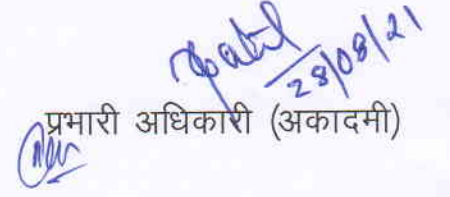 28/08/21
प्रभारी अधिकारी (अकादमी)